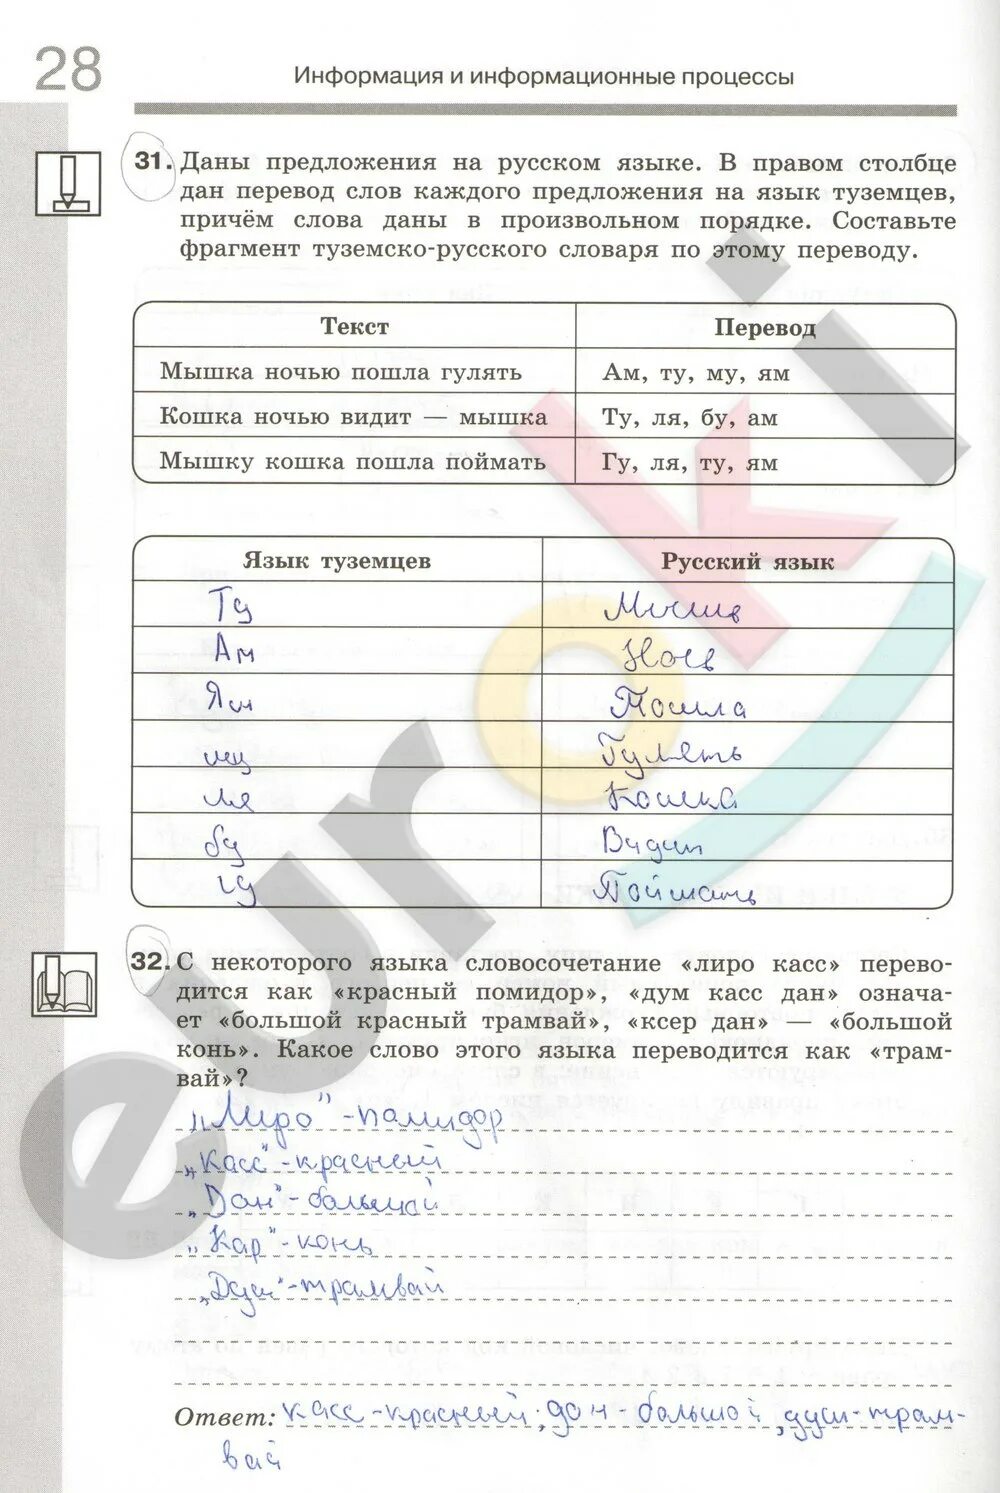 28
Информация и информационные процессы
31. Даны предложения на русском языке. В правом столбце
дан перевод слов каждого предложения на язык туземцев,
причём слова даны в произвольном порядке. Составьте
фрагмент туземско-русского словаря по этому переводу.
Текст Перевод
Мышка ночью пошла гулять Ам, ту, му, ям
Кошка ночью видит — мышка Ту, ля, бу, ам
Мышку кошка пошла поймать Гу, ля, ту, ям
Язык туземцев Русский язык
Ту
Ам Ночь
Ям Пошла
му Гулять
ля Кошка
бу Видит
гу Поймать
32. С некоторого языка словосочетание «лиро касс» перево-
дится как «красный помидор», «дум касс дан» означа-
ет «большой красный трамвай», «ксер дан» — «большой
конь». Какое слово этого языка переводится как «трам-
вай»?
„Лиро" - помидор
„Касс" - красный
„Дан" - большой
„Кар" - конь
„Дум" - трамвай
Ответ: касс - красный, дан - большой, дум - трам-
вай
euroki